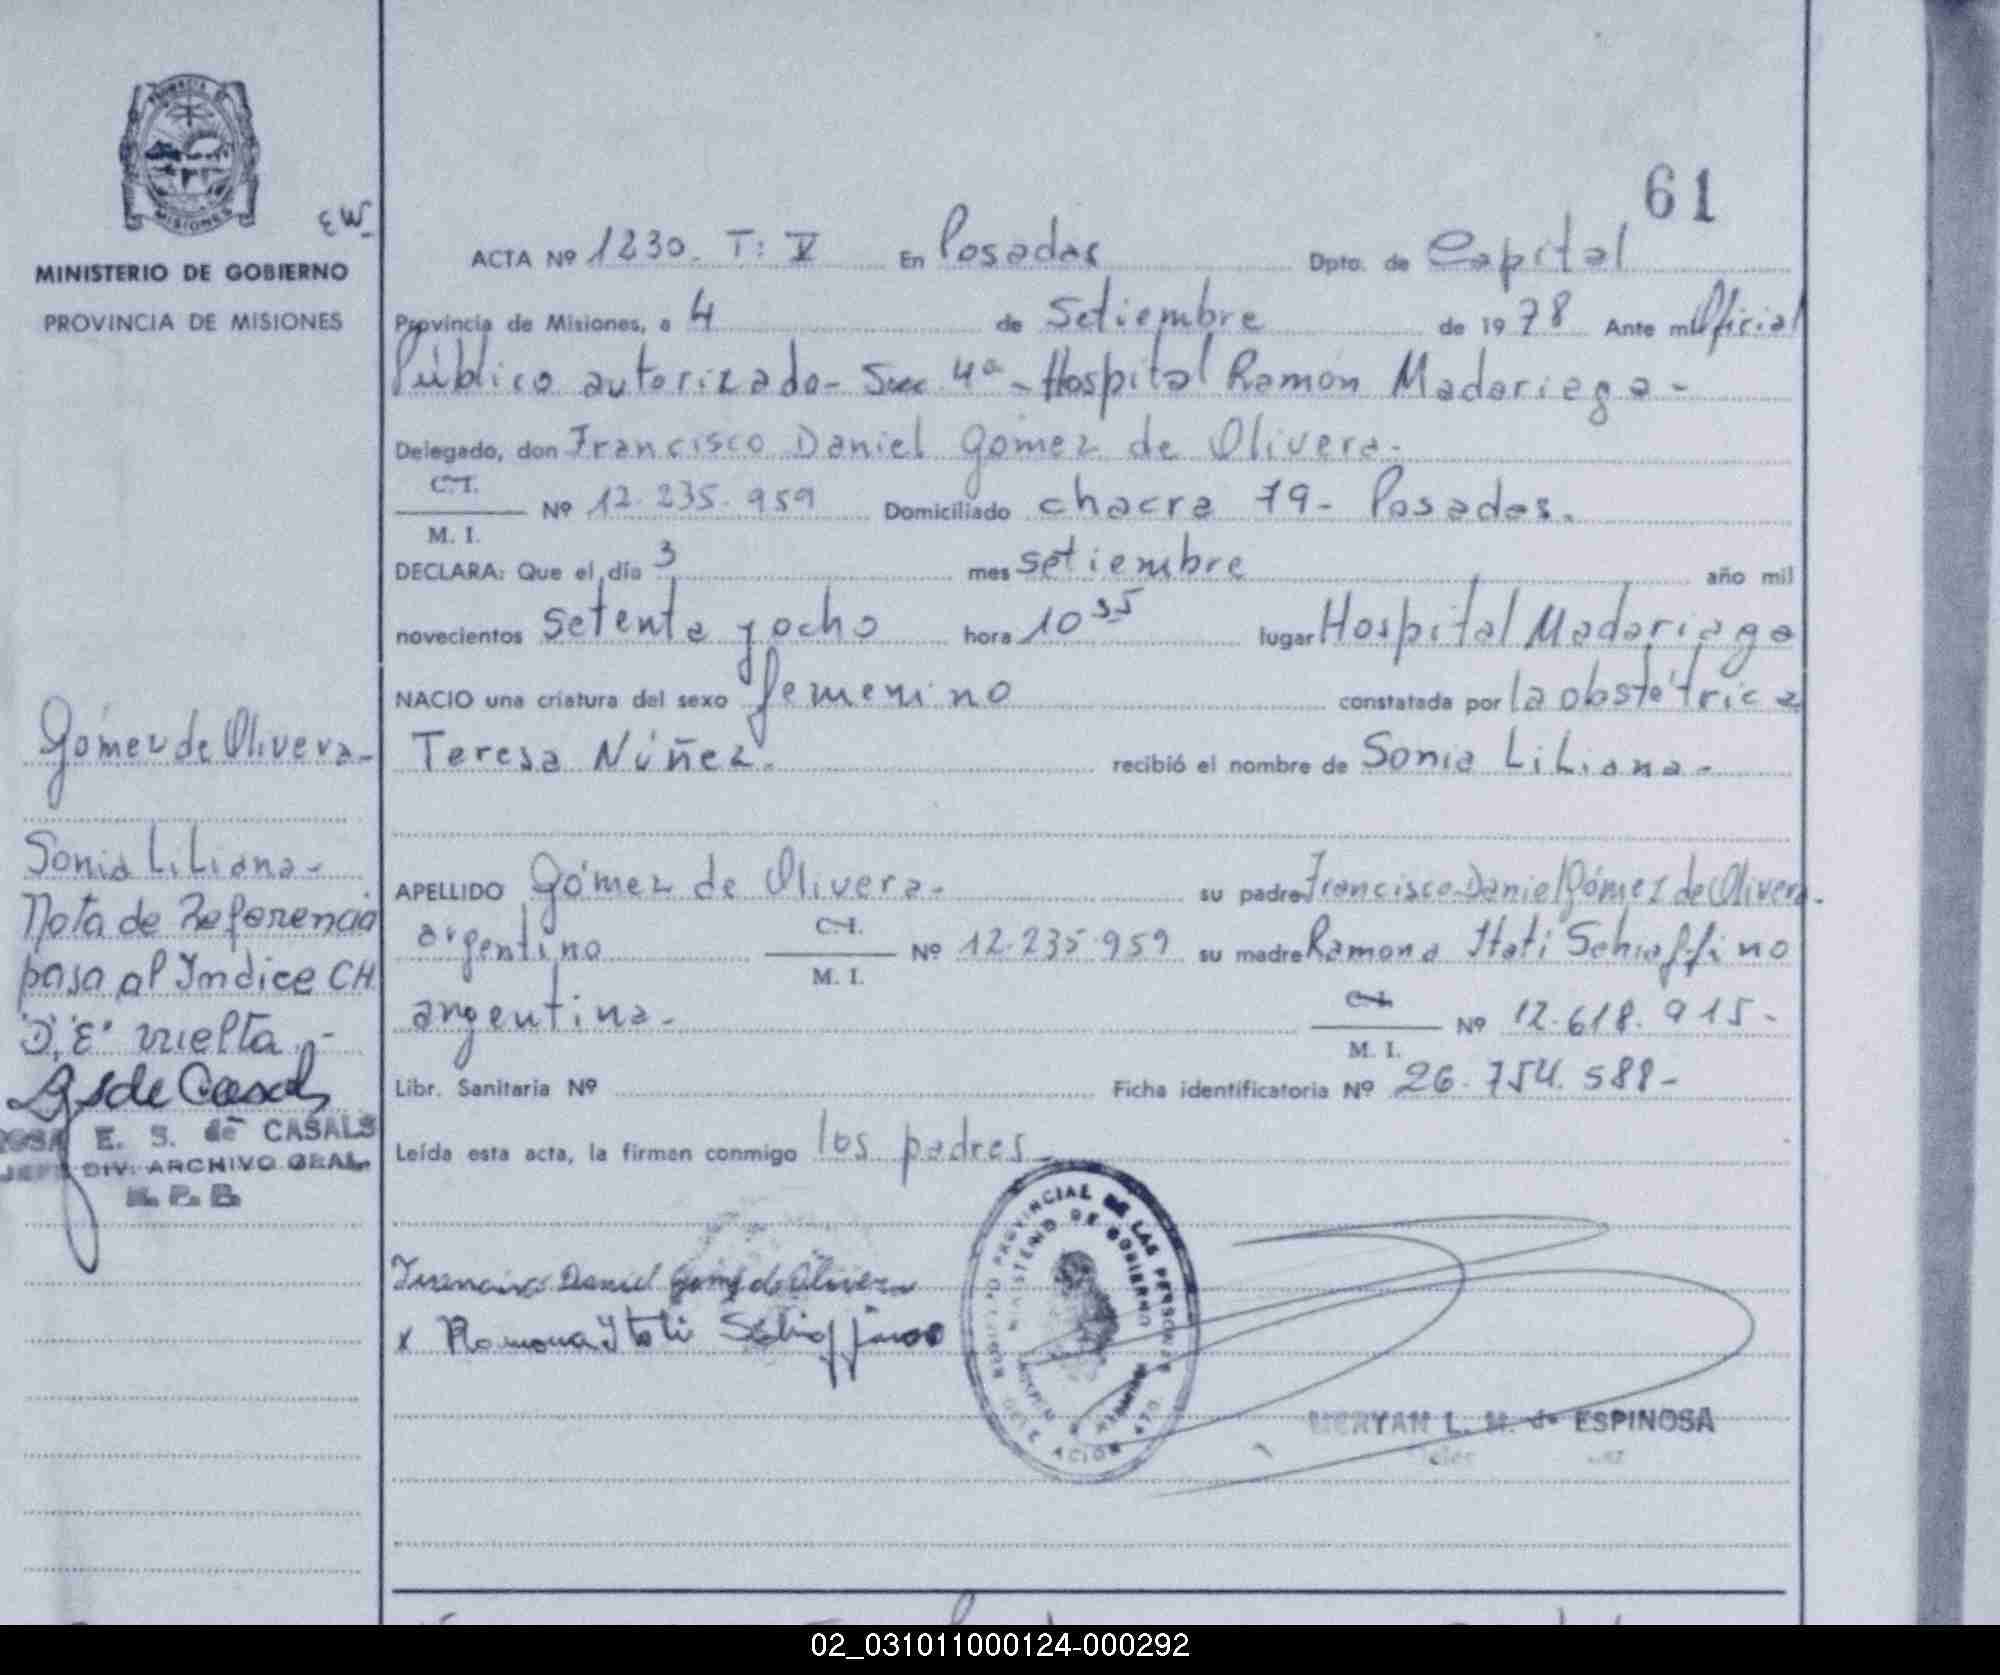 61
PROVINCIA DE
MISIONES
EW
MINISTERIO DE GOBIERNO
PROVINCIA DE MISIONES
ACTA Nº 1230. T: V En Posadas Dpto. de Capital
Provincia de Misiones, a 4 de Setiembre de 1978 Ante mi Oficial
Público autorizado - Secc 4ª - Hospital Ramón Madariaga -
Delegado, don Francisco Daniel Gómez de Olivera.
C.I.
M. I.
Nº 12.235.959 Domiciliado chacra 79 - Posadas.
DECLARA: Que el día 3 mes setiembre año mil
novecientos setenta y ocho hora 10 35 lugar Hospital Madariaga
NACIO una criatura del sexo femenino constatada por la obstétrica
Teresa Núñez. recibió el nombre de Sonia Liliana -
APELLIDO Gómez de Olivera. su padre Francisco Daniel Gómez de Olivera.
argentino C.I. Nº 12.235.959 su madre Ramona Itatí Schiaffino
M. I.
argentina. C.I. Nº 12.618.915.
M. I.
Libr. Sanitaria Nº Ficha identificatoria Nº 26.754.588 -
Leída esta acta, la firman conmigo los padres.
Francisco Daniel Gómez de Olivera
x Ramona Itatí Schiaffino
REGISTRO PROVINCIAL DE LAS PERSONAS
MINISTERIO DE GOBIERNO
MERYAN L. M. de ESPINOSA
Gómez de Olivera -
Sonia Liliana -
Nota de Referencia
pasa al Indice CH.
"D, E" vuelta. -
ROSA E. S. de CASALS
JEFE DIV. ARCHIVO GRAL.
R. P. P.
02_031011000124-000292